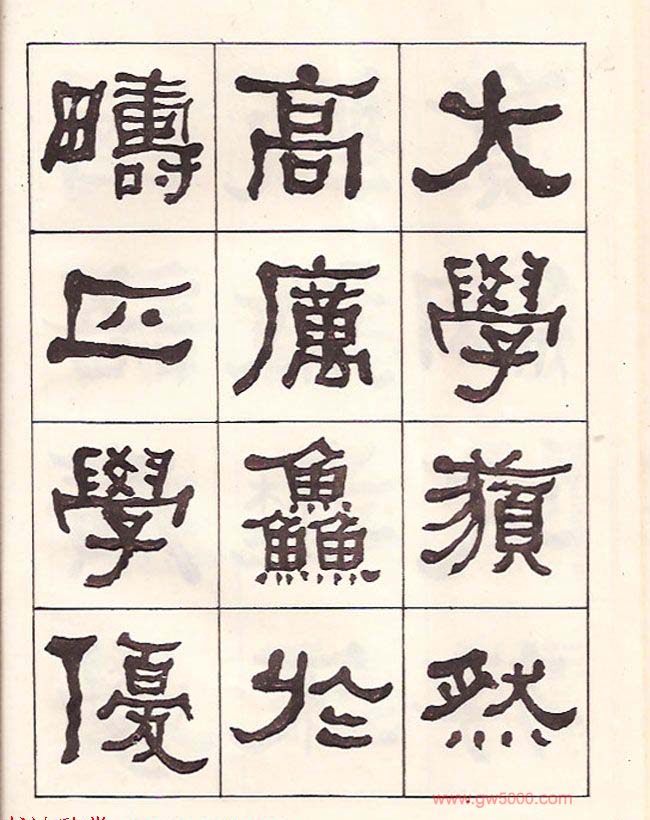 大學藐然
高厲鱻於
疇匹學優
www.gw5000.com